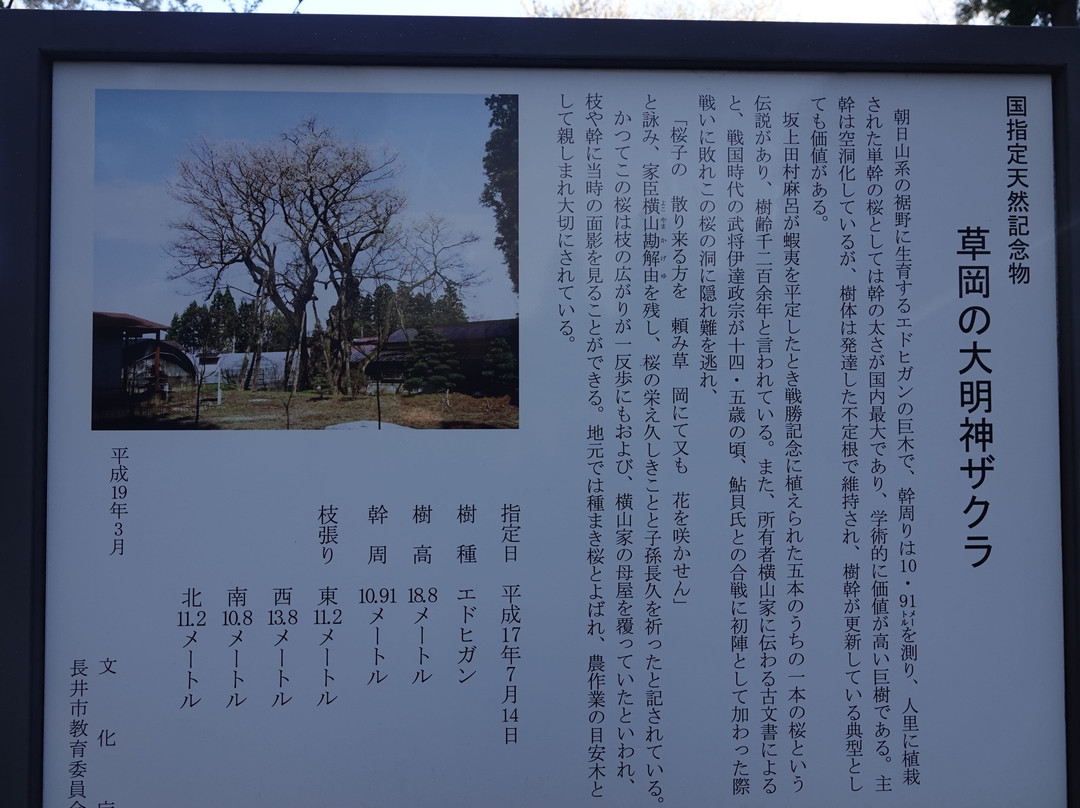 国指定天然記念物
草岡の大明神ザクラ
朝日山系の裾野に生育するエドヒガンの巨木で、幹周りは10・91メートルを測り、人里に植栽
された単幹の桜としては幹の太さが国内最大であり、学術的に価値が高い巨樹である。主
幹は空洞化しているが、樹体は発達した不定根で維持され、樹幹が更新している典型とし
ても価値がある。
坂上田村麻呂が蝦夷を平定したとき戦勝記念に植えられた五本のうちの一本の桜という
伝説があり、樹齢千二百余年と言われている。また、所有者横山家に伝わる古文書による
と、戦国時代の武将伊達政宗が十四・五歳の頃、鮎貝氏との合戦に初陣として加わった際
戦いに敗れこの桜の洞に隠れ難を逃れ、
「桜子の 散り来る方を 頼み草 岡にて又も 花を咲かせん」
と詠み、家臣横山勘解由を残し、桜の栄え久しきことと子孫長久を祈ったと記されている。
よこやまかげゆ
かつてこの桜は枝の広がりが一反歩にもおよび、横山家の母屋を覆っていたといわれ、
枝や幹に当時の面影を見ることができる。地元では種まき桜とよばれ、農作業の目安木と
して親しまれ大切にされている。
指定日 平成17年7月14日
樹種 エドヒガン
樹高 18.8メートル
幹周 10.91メートル
枝張り 東 11.2メートル
西 13.8メートル
南 10.8メートル
北 11.2メートル
平成19年3月
文化
長井市教育委員会